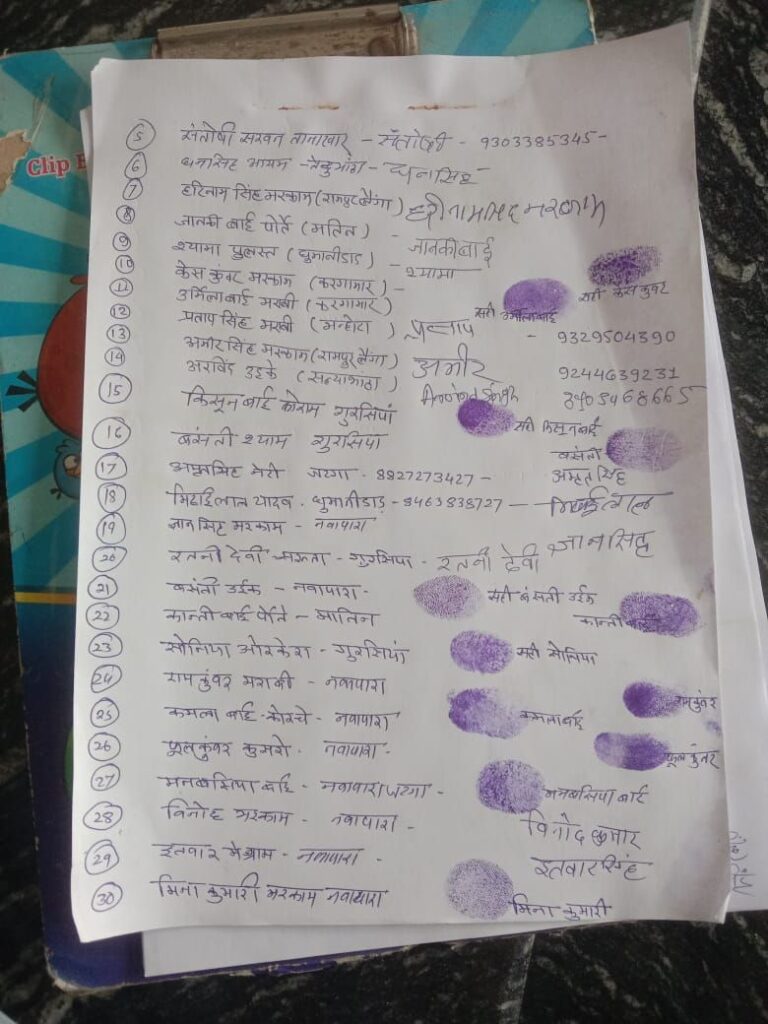 Clip B
5 संतोषी सरवन तानाखार - संतोषी - 9303385345-
6 धनसिंह - धनसिंह
7 हरिनाम सिंह मरकाम (रामपुर बैगा) हरीनामसिंह मरकाम
8 जानकी बाई पोर्ते (मतिन) - जानकीबाई
9 श्यामा पुलस्त (घुमानीडाड) - श्यामा
10 केस कुंवर मरकाम (करगामार) - सही केस कुंवर
11 उर्मिला बाई मरावी (करगामार) सही उर्मीलाबाई
12 प्रताप सिंह मरावी () प्रताप - 9329504390
13 अमीर सिंह मरकाम (रामपुर बैगा) अमीर 9244639231
14 अरविंद उइके () Arvind Singh 8403468665
15 किसून बाई कोराम गुरसियां सही किसून बाई
16 बसंती श्याम गुरसियां बसंती
17 अमृतसिंह जटगा - 8827273427 - अमृतसिंह
18 मिठाईलाल यादव - घुमानीडाड - 8463838727 - मिठाईलाल
19 ज्ञानसिंह मरकाम - नवापारा ज्ञानसिंह
20 रतनी देवी - गुरसियां - रतनी देवी
21 बसंती उईके - नवापारा - सही बसंती उईके
22 कान्ती बाई पोर्ते - मातिन कान्ती बाई
23 सोनिया ओरकेरा - गुरसियां सही सोनिया
24 राम कुंवर मरावी - नवापारा रामकुंवर
25 कमला बाई कोरचे - नवापारा कमलाबाई
26 फूलकुंवर कुसरो - नवापारा - फूल कुंवर
27 मनबसिया बाई - नवापारा जटगा - मनबसिया बाई
28 विनोद मरकाम - नवापारा - विनोद कुमार
29 इतवार - नवापारा - इतवार सिंह
30 मिना कुमारी मरकाम नवापारा मिना कुमारी